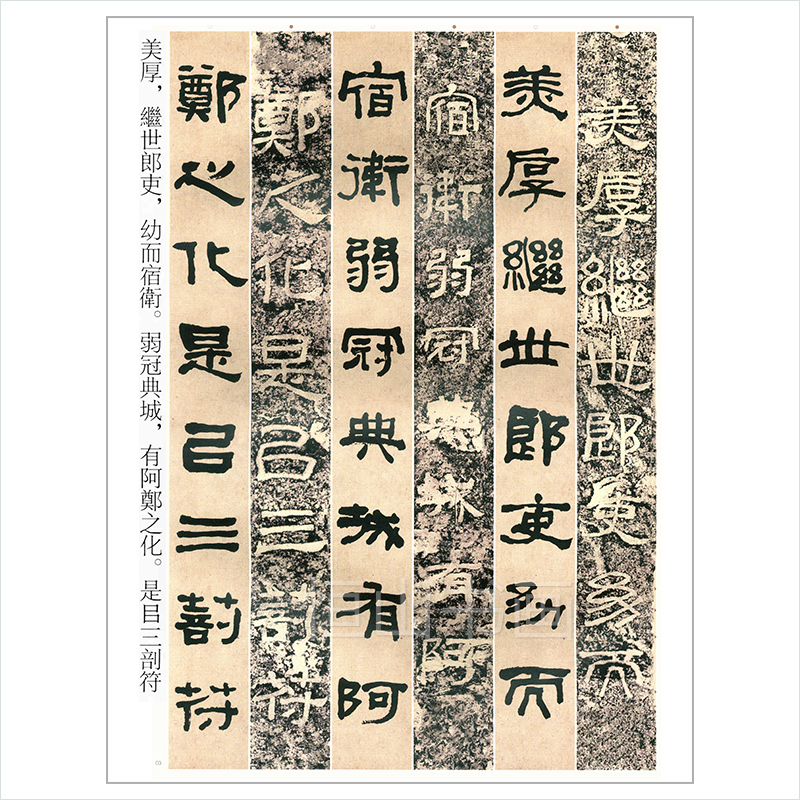 美厚繼世郎吏幼而
美厚繼世郎吏幼而
宿衛弱冠典城有阿
宿衛弱冠典城有阿
鄭之化是㠯三剖符
鄭之化是㠯三剖符
美厚，繼世郎吏，幼而宿衛。弱冠典城，有阿鄭之化。是㠯三剖符